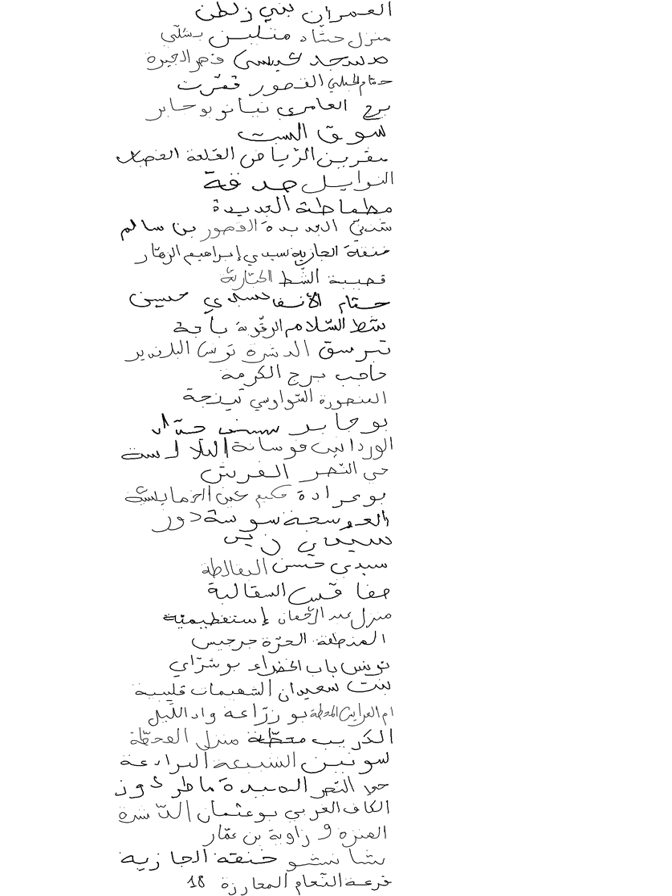 العمران بني زلطن
منزل حشاد متلين بشلي
مسجد عيسى قصر الجيرة
القصور قمرت
برج العامري نيانو بوجابر
سوق السبت
مقرين الرياض القلعة
النوايل جدقة
مطماطة الجديدة
الجديدة القصور بن سالم
خنقة الجازية سيدي إبراهيم الزهار
قصيبة الشط
حمام الأنف سيدي حسين
شط السلام الزقوبة باجة
تبرسق الدشرة
حاجب برج الكرمة
المنصورة التواوسي تيزجة
بوجابر
الوردانين فوسانة البلالسة
حي النصر العريش
بوعرادة حكيم عين الرمايشية
العوسجة سوسة دوز

سيدي حسن
صفاقس السقالبة
منزل عبد الرحمان إستفطيمية
المنطقة الحرة جرجيس
تونس باب الخضراء بوشراي
بنت سعيدان الشعيمات قليبية
ام العرايس المحطة بوزراعة واد الليل
الكريب محطة منزل المحطة
لسونين الشبيعة البرادعة
حي النصر السيدة ماطر
الكاف الغربي بوعثمان الدشرة
المنزه 9 زاوية بن عمار
شاشو خنقة الجازية
قرعة النعام المعارزة 18